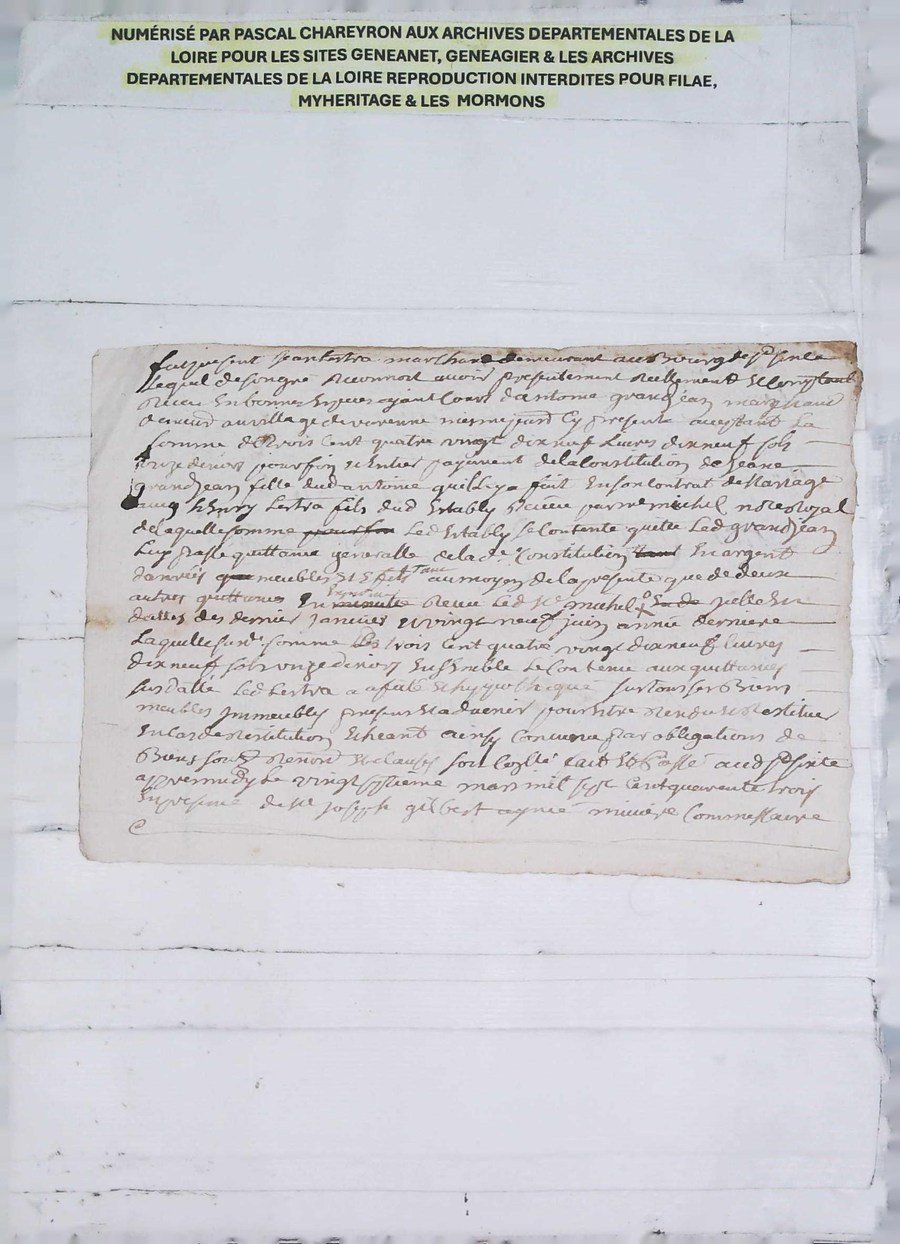 NUMÉRISÉ PAR PASCAL CHAREYRON AUX ARCHIVES DEPARTEMENTALES DE LA
LOIRE POUR LES SITES GENEANET, GENEAGIER & LES ARCHIVES
DEPARTEMENTALES DE LA LOIRE REPRODUCTION INTERDITES POUR FILAE,
MYHERITAGE & LES MORMONS
fut present Jean Lestra marchand demeurant au Bourg de
Lequel de son gré Reconnoit avoir presentement Reellement Et Comptant
Receu En bonnes Especes ayant Cours d'antoine grandjean marchand
au village de varenne Cy present acceptant La
somme de trois cent quatre vingt dix neuf Livres dix neuf sols
onze deniers pour fin Et Entier payement de la Constitution de Jeane
grandjean fille dud antoine quil luy a fait En son Contrat de Mariage
avec henry Lestra fils dud Estably Receu par me michel no^re Royal
de laquelle somme Led Estably se Contente quitte Led grandjean
Luy passe quittance generalle de la de. Constitution En argent
danrées meubles Et au moyen de la presente que de deux
autres quittances Receu Led Sr michel
dattes des dernier janvier Et vingt neuf juin année derniere
Laquelle susd. somme des trois cent quatre vingt dix neuf livres
dix neuf sols onze deniers Ensemble Le Contenu aux quittances
susdatté Led Lestra a assuré Et hypothequé sur tous ses Biens
meubles Immeubles presens Et advenir pour Estre Rendu Et Restituer
En Cas de Restitution Echeant ainsy Convenu par obligations de
Biens Renond Et Clauses fait Et Passé aud
apres midy Le vingt septieme mars mil sept Cent quarante trois
En presence de Sr joseph gilbert Commissaire